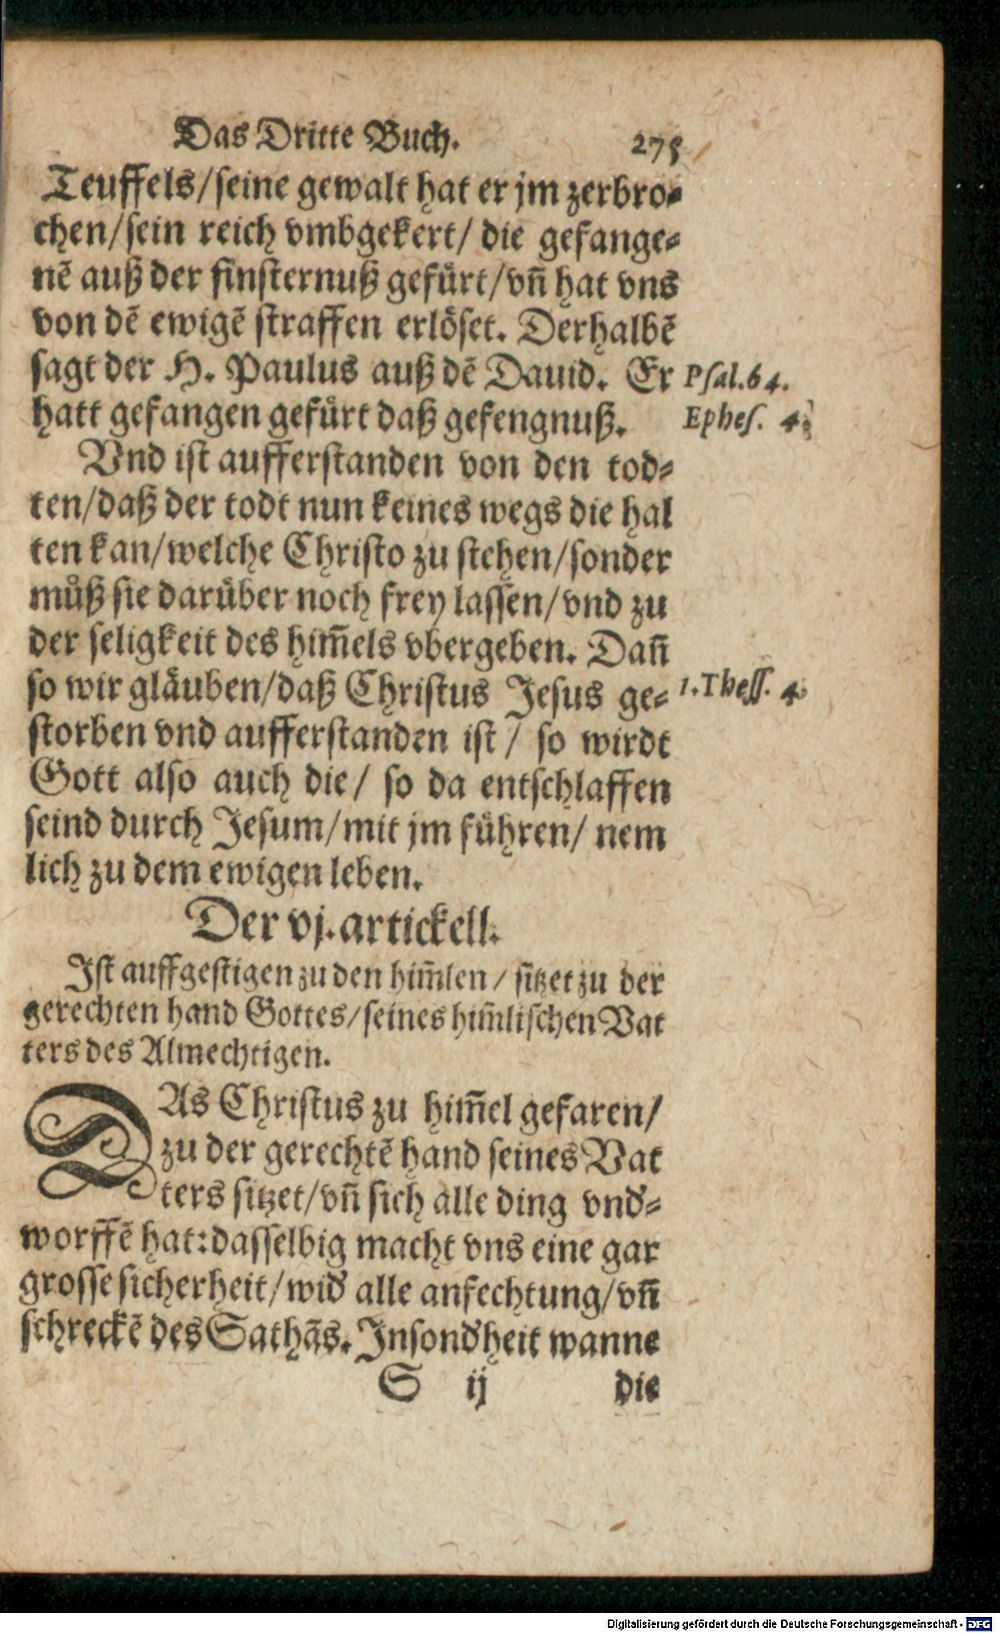 Das Dritte Buch. 275
Teuffels/seine gewalt hat er jm zerbro-
chen/sein reich vmbgekert/ die gefange-
nē auß der finsternuß gefürt/vñ hat vns
von dē ewigē straffen erlöset. Derhalbē
sagt der H. Paulus auß dē Dauid. Er Psal.64.
hatt gefangen gefürt daß gefengnuß. Ephes. 4.
Vnd ist aufferstanden von den tod-
ten/daß der todt nun keines wegs die hal
ten kan/welche Christo zu stehen/sonder
můß sie darüber noch frey lassen/vnd zu
der seligkeit des him̄els vbergeben. Dañ
so wir gläuben/daß Christus Jesus ge- 1.Thess. 4.
storben vnd aufferstanden ist/ so wirdt
Gott also auch die/ so da entschlaffen
seind durch Jesum/mit jm führen/ nem
lich zu dem ewigen leben.
Der vj. artickell.
Ist auffgestigen zu den him̄len/ sitzet zu der
gerechten hand Gottes/seines him̄lischen Vat
ters des Almechtigen.
DAs Christus zu him̄el gefaren/
zu der gerechtē hand seines Vat
ters sitzet/vñ sich alle ding vnd'-
worffē hat:dasselbig macht vns eine gar
grosse sicherheit/wid' alle anfechtung/vñ
schreckē des Sathās. Insond'heit wanne
S ij die
Digitalisierung gefördert durch die Deutsche Forschungsgemeinschaft - DFG